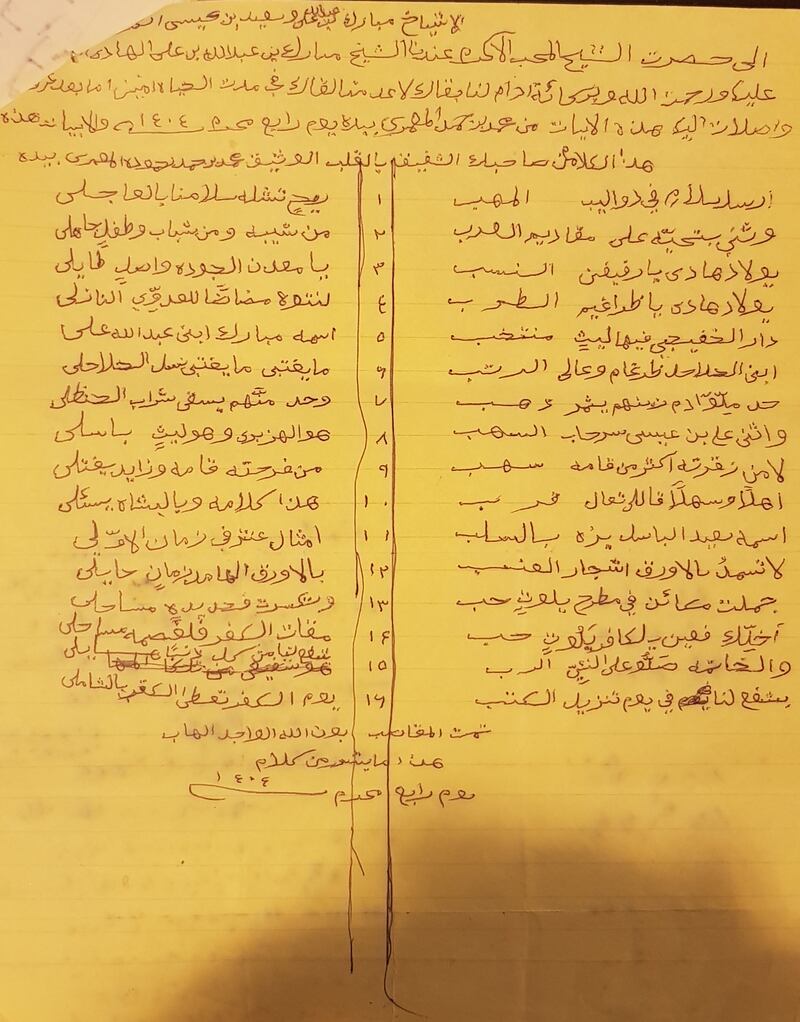 الاشياخ مبارك بن عبدالله بن علي وسعيد بن عيسى
الى حضرت الشيخ المحب الاكرم عندنا الشيخ مبارك بن عبدالله بن علي الهادي
عليك ورحمت الله وبركاته ادام لنا بقاك لاعدمنا لقاك في مدت الحياه امين اما بعد
واصلات اليك هذه الابيات من محمد بن حمد المهري بيده يوم رابع محرم ١٤٠٤ والابيات هذه
هذا الكلام من صاحبك الشفيق بالقلب الوثيق محمد بن حمد بن جوده المهري بيده
ارسل سلام في دواليب المهب ١ ريح تشله سلامنا بالعاجلي
وثني بتحيه على مقاديم العرب ٢ من شيبه ومن شباب وطفل جاهلي
يولاد هادي يا رفيعن النسب ٣ يا معدن الجوده واصل طايلي
يولاد هادي يا ظراغيم الطرب ٤ لنتوه مضاضا للعدوّي النازلي
دار الخفيجي فيها ليث منتخب ٥ اسمه مبارك ابن عبدالله علي
ابن الحلاحل ظرغام وعالي الرتب ٦ ما يغتبى ما يغتبى نسل الحلاحلي
حد ملوّادم منهم يثمر ذهب ٧ وحد منّهم يسقي شراب الحنظلي
واثني علي بن عيسى سرحاب السهب ٨ هو الهزبري وهو ليث باسلي
لامن نقرته أكثر من قامه سهب ٩ من فرحته قامه وزايد يفتلي
اهلاً وسهلاً قال لي تعال قرب ١٠ هذا كلامه وبالبشاشه يسئلي
اسمه سعيد الباسل يزه بالسلب ١١ امثال عنتر في زمان الاوّلي
لا تسمدُ بالاورق اشجار العنب ١٢ بالاورق الهامد زمان حايلي
جملت مكائن في مطرح بلوت حب ١٣ وتكسرت فحديده مساحلي
أخيّك فعين يلكافر يلوت حب ١٤ مفات الكفر فلغصمه مساحلي
والخاتمه صلّو على النبيّ الرب ١٥
يشفع لنا في يوم تنزيل الكتب ١٦ يوم الكفر تعطى الكفر بالشاملي
تمت المقاصب بعون الله الواجد الهاب
هذا ما تيسر من كلام
يوم رابع محرم ١٤٠٤